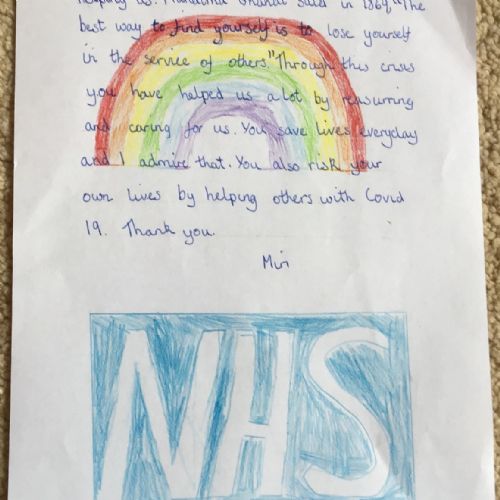 helping us. Mahatma Ghandi said in 1869 "The
best way to find yourself is to lose yourself
in the service of others." Through this crisis
you have helped us a lot by reassuring
and caring for us. You save lives everyday
and I admire that. You also risk your
own lives by helping others with Covid
19. Thank you.
Miri
NHS